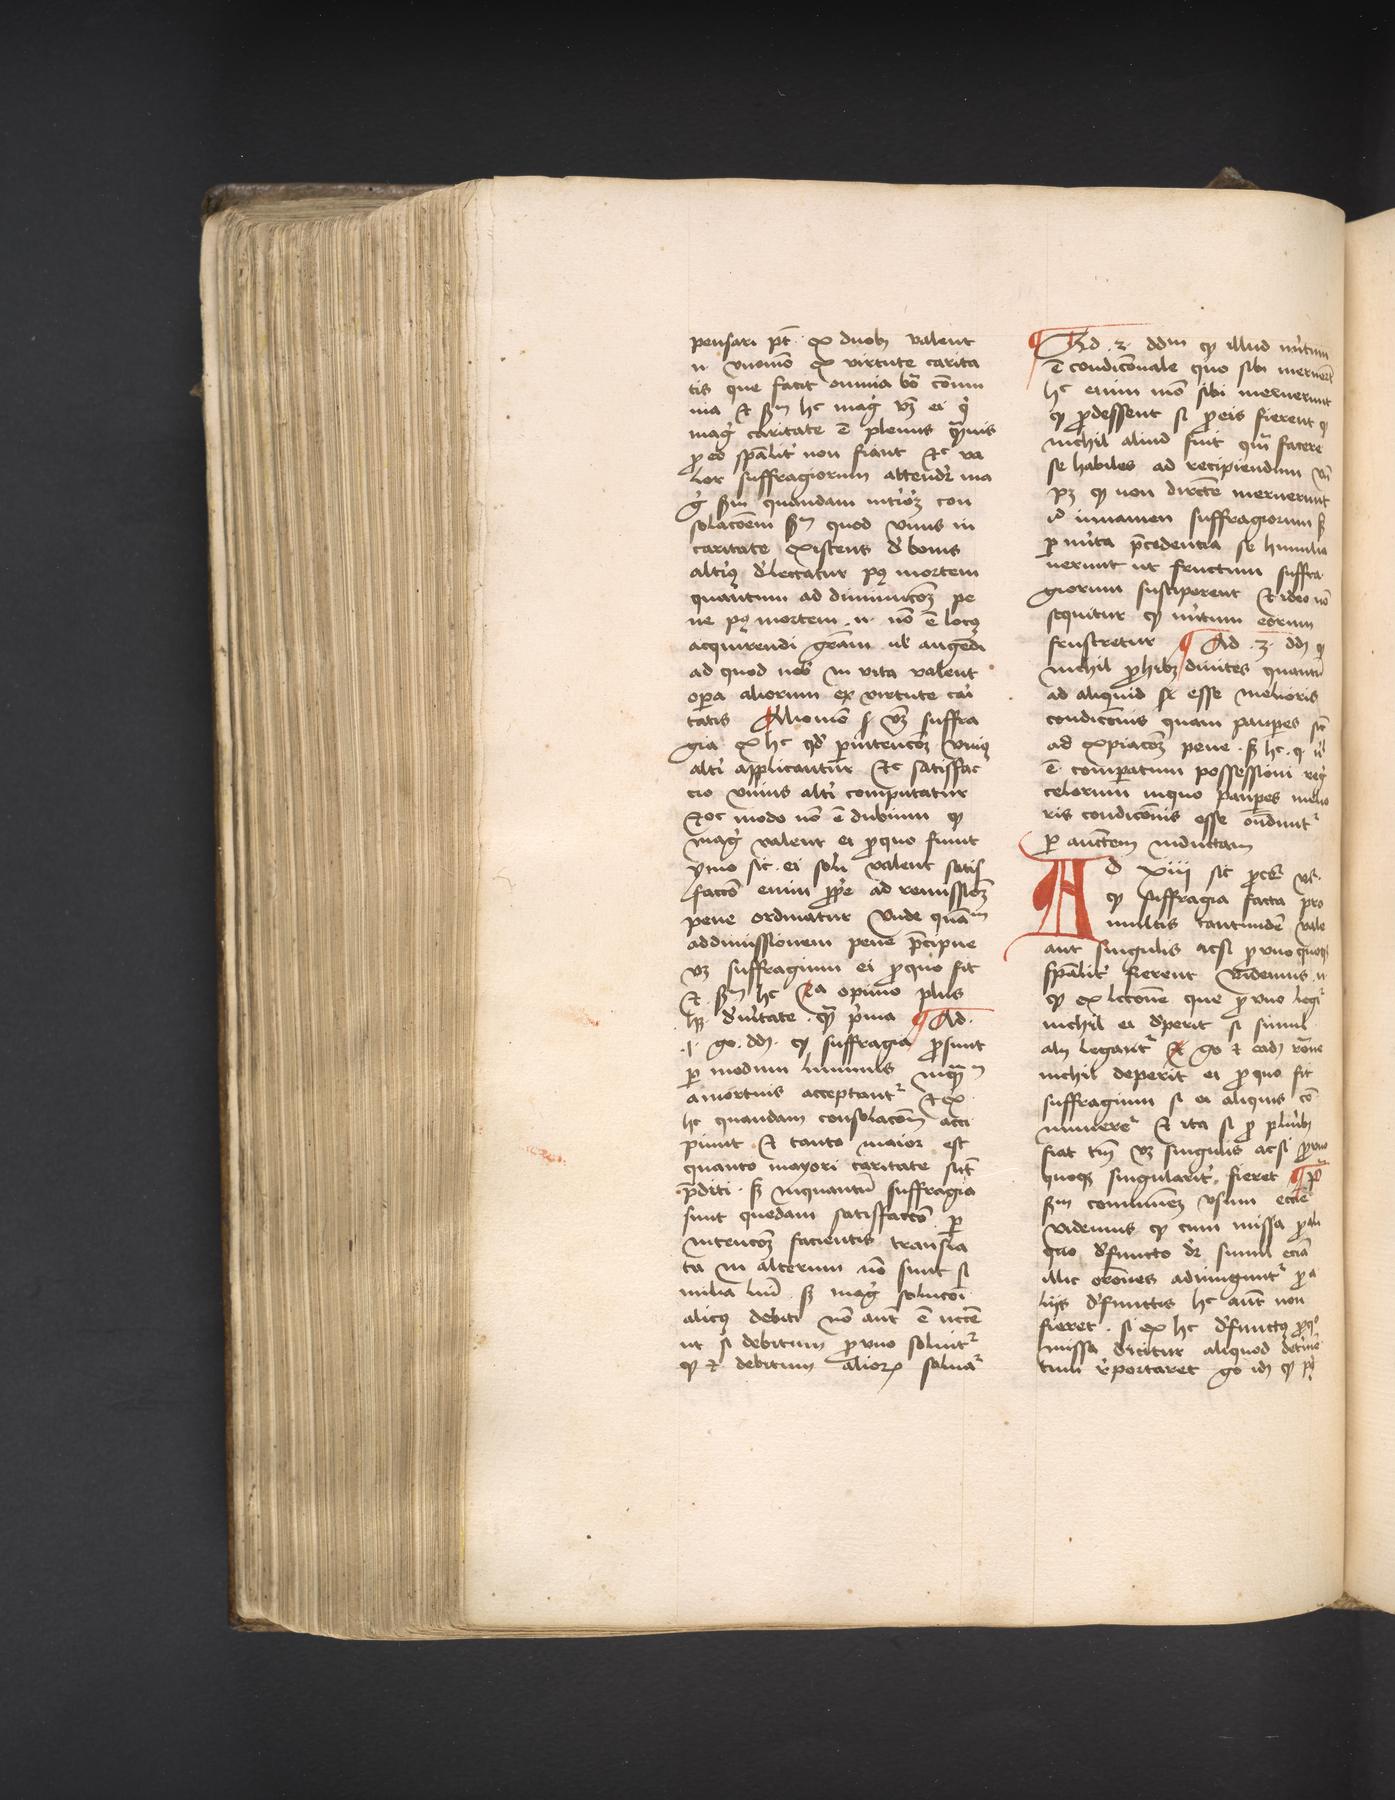 pensari pt̄ ex duobꝫ valent
n̄ vnomō ex virtute carita
tis que facit omnia bōa cōmu
nia et scd̄m hͨ mag̉ vꝫ ei q̉
mag̉ caritate ē plenus quāuis
ꝓ eo spālit̉ non fiant Et ͨ va
lor suffragiorum attendit̉ ma
g̉ scd̄m quandam int̉ioꝫ con
solacōem scd̄m quod vnus in
caritate existens d̉ bonis
altỉꝯ d̉lectatur pꝯ mortem
quantum ad diminucōꝫ pe
ne pꝯ mortem .n. nō ē locꝯ
acquirendi grām ul̉ augēdi
ad quod nob̉ in vita valent
oꝑa aliorum ex virtute cari
tatis Aliomō s̉ vꝫ suffra
gia ex hͨ qd̉ ꝑ intencōꝫ vniꝯ
altỉ applicantur Et ͨ satisffac
cio vnius altỉ computatur
Et oͨ modo nō ē dubium ꝙ
mag̉ valent ei ꝓ quo fiunt
ymo sic ei soli valent satis
ffacco enim ꝓp̉e ad remissioꝫ
pene ordinatur Vnde quātū
ad dimissionem pene p̄cipue
vꝫ suffragium ei ꝓ quo fit
Et scd̄m hͨ Ista opinio plus
hꝫ d̉ v̉itate q̄ p̉ma ¶ Ad
.1. g̊ dd̄m ꝙ suffragia ꝓsunt
ꝑ modum luminis inq̄tū
a mortuis acceptant̉ Et ex
hͨ quandam consolacōm acci
piunt Et tanto maior est
quanto mayori caritate sūt
p̄diti . sꝫ inquantū suffragia
sunt quedam satisfaccō ꝑ
intencōꝫ facientis transla
ta in alterum nō sunt si
milia lūi sꝫ mag̉ solucōi
alicꝯ debiti nō aūt ē necc̄e
ut si debitum ꝓ vno soluit̉
ꝙ et debitum alioꝝ soluat̉
¶ Ad .2. dd̄m ꝙ illud m̉itum
ē condicōnale quo sibi meruer̄t
hͨ enim mō sibi meruerunt
ꝙ ꝓdessent si ꝓ eis fierent ꝙ
nichil aliud fuit quā facere
se habiles ad recipiendum vn̄
pꝫ ꝙ non dircē̄te meruerunt
id iuuamen suffragiorum sꝫ
ꝑ m̉ita p̄cedentia se humilia
uerunt ut fructum suffra
giorum susciperent Et ideo nō
sequitur ꝙ m̉itum eorum
frustretur ¶ Ad .3. dd̄m ꝙ
nichil ꝓhibꝫ diuites quantū
ad aliquid esse melioris
condicōnis quam pauꝑes sic̄
ad expiacōꝫ pene . sꝫ hͨ q̉ n̄l
ē comꝑatum possessioni reg̉
celorum in quo pauꝑes melio
ris condicōnis esse on̄dunt̉
ꝑ auct̄em inductam
Ad xiiii sic ꝓcd̉ vr̉
ꝙ suffragia facta pro
multis tantundē vale
ant singulis acsi ꝓ vno quoqꝫ
spālit̉ fierent Videmus .n.
ꝙ ex lcc̄one que ꝓ vno legit̉
nichil ei d̉perit si simul
alij legant̉ Et g̊ et ead̄ rōne
nichil deperit ei ꝓ quo fit
suffragium si ei aliquis cō
nūmeret̉ Et ita si ꝓ plurib̉
fiat tm̄ vꝫ singulis acsi ꝓ vno
quoqꝫ singularit̉ fieret ¶ P̄
scd̄m communeꝫ vsum ecc̄le
videmus ꝙ cum missa ꝓ ali
quo d̉functo dr̉ simul eciā
illic orōnes adiungunt̉ ꝓ a
lijs d̉functis hͨ aūt non
fieret . si ex hͨ d̉functꝯ ꝓ quo
missa dicitur aliquod det̉imē
tum r̉portaret g̊ id̄ ꝙ p̉